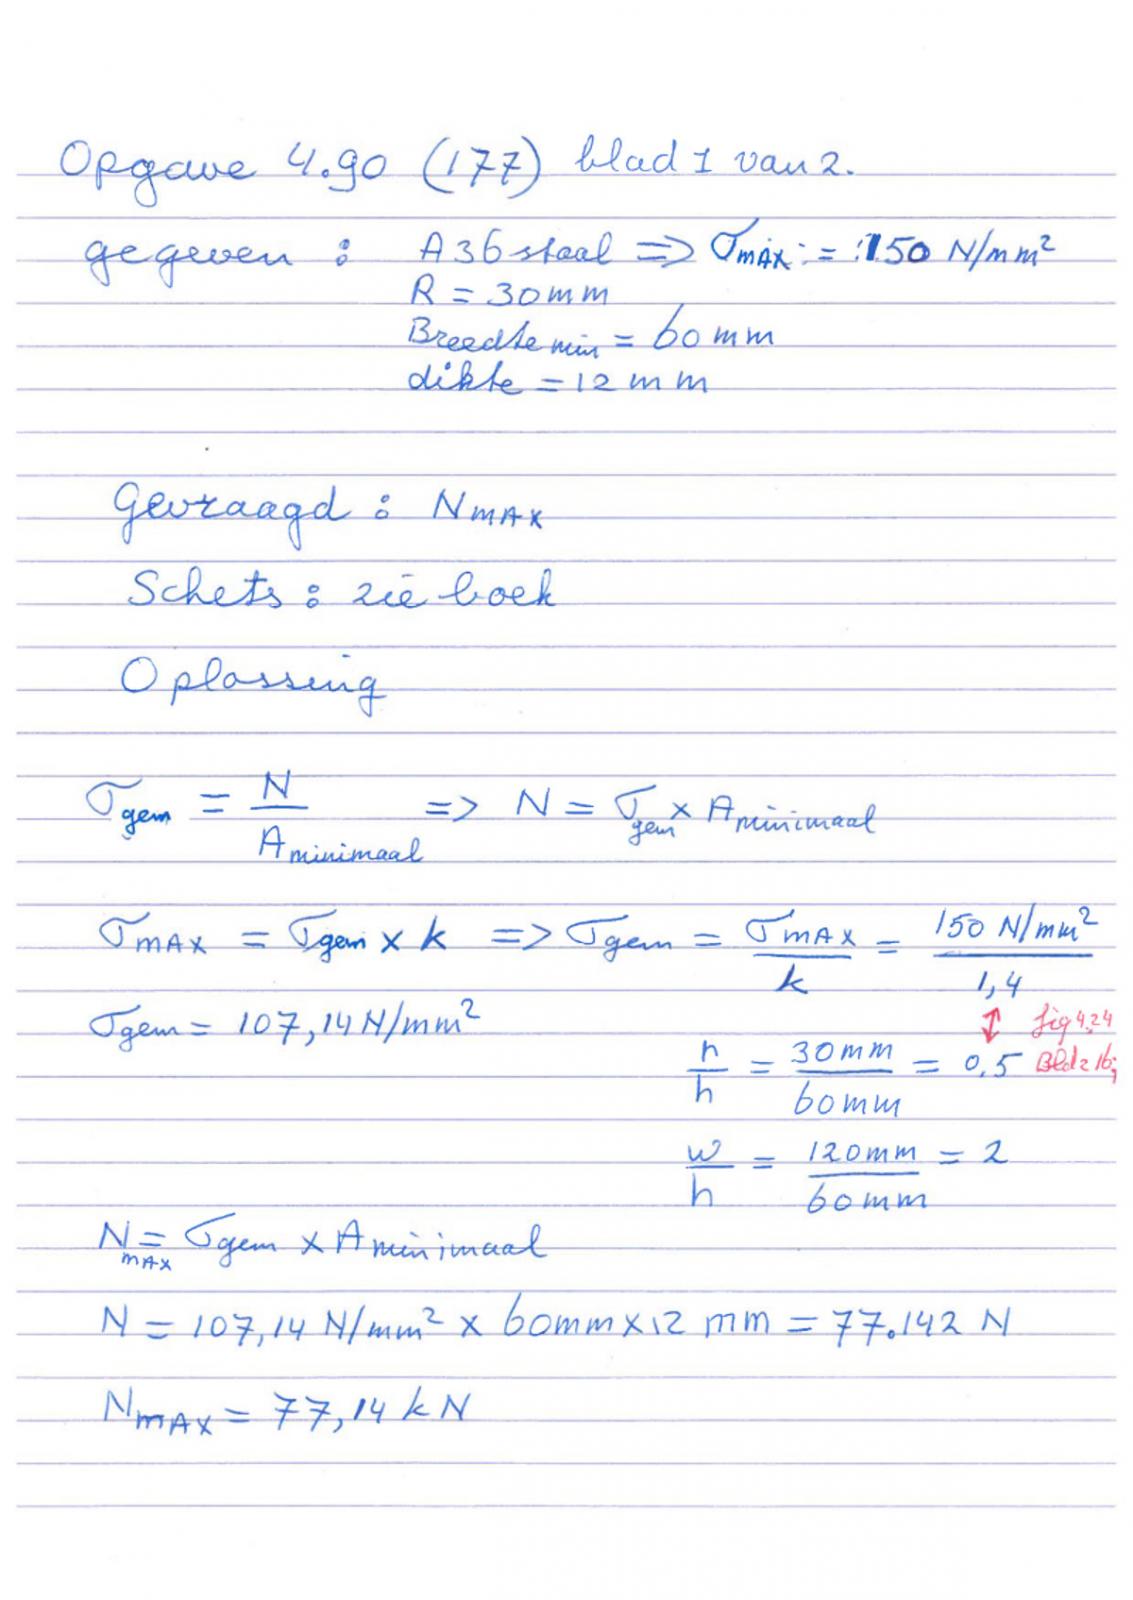 Opgave 4.90 (177) blad 1 van 2.
gegeven : A36 staal => σmax = 150 N/mm²
R = 30mm
Breedte min = 60 mm
dikte = 12 mm
Gevraagd : NMAX
Schets : zie boek
Oplossing
σgem = N / Aminimaal => N = σgem x Aminimaal
σMAX = σgem x k => σgem = σMAX / k = 150 N/mm² / 1,4
σgem = 107,14 N/mm²
fig 4.24
r/h = 30mm / 60mm = 0,5
w/h = 120mm / 60mm = 2
Nmax = σgem x Aminimaal
N = 107,14 N/mm² x 60mm x 12 mm = 77.142 N
NMAX = 77,14 kN